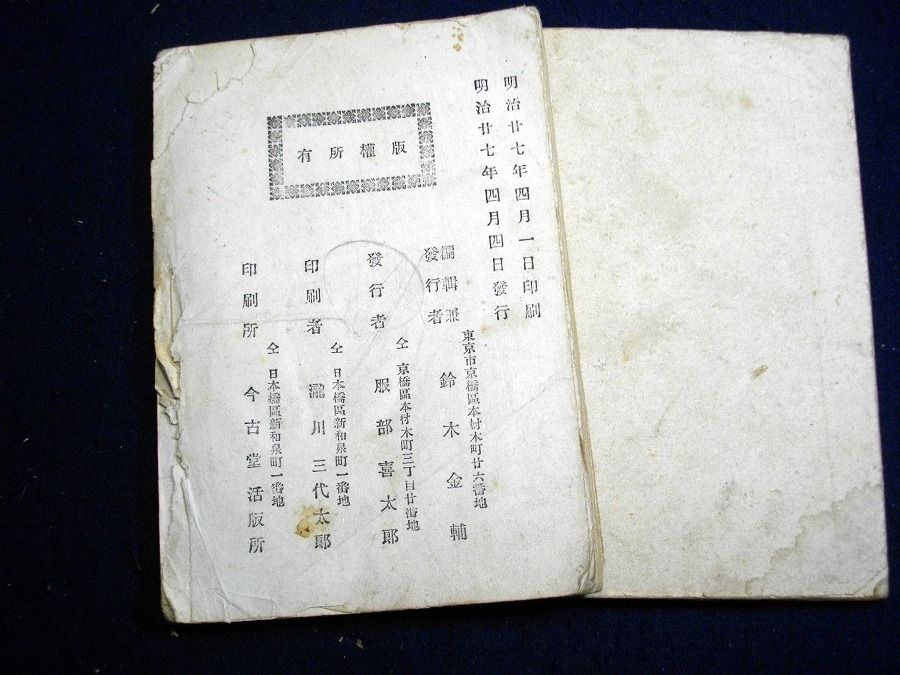 明治廿七年四月一日印刷
明治廿七年四月四日發行
版權所有
編輯兼
發行者
東京市京橋區本材木町廿六番地
鈴木金輔
發行者
仝京橋區本材木町三丁目廿番地
服部喜太郎
印刷者
仝日本橋區新和泉町一番地
瀧川三代太郎
印刷所
仝日本橋區新和泉町一番地
今古堂活版所